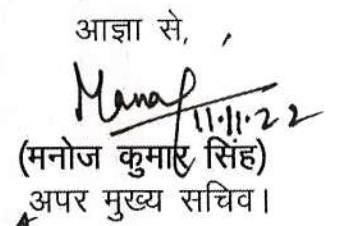 आज्ञा से,
Manoj
11.11.22
(मनोज कुमार सिंह)
अपर मुख्य सचिव।